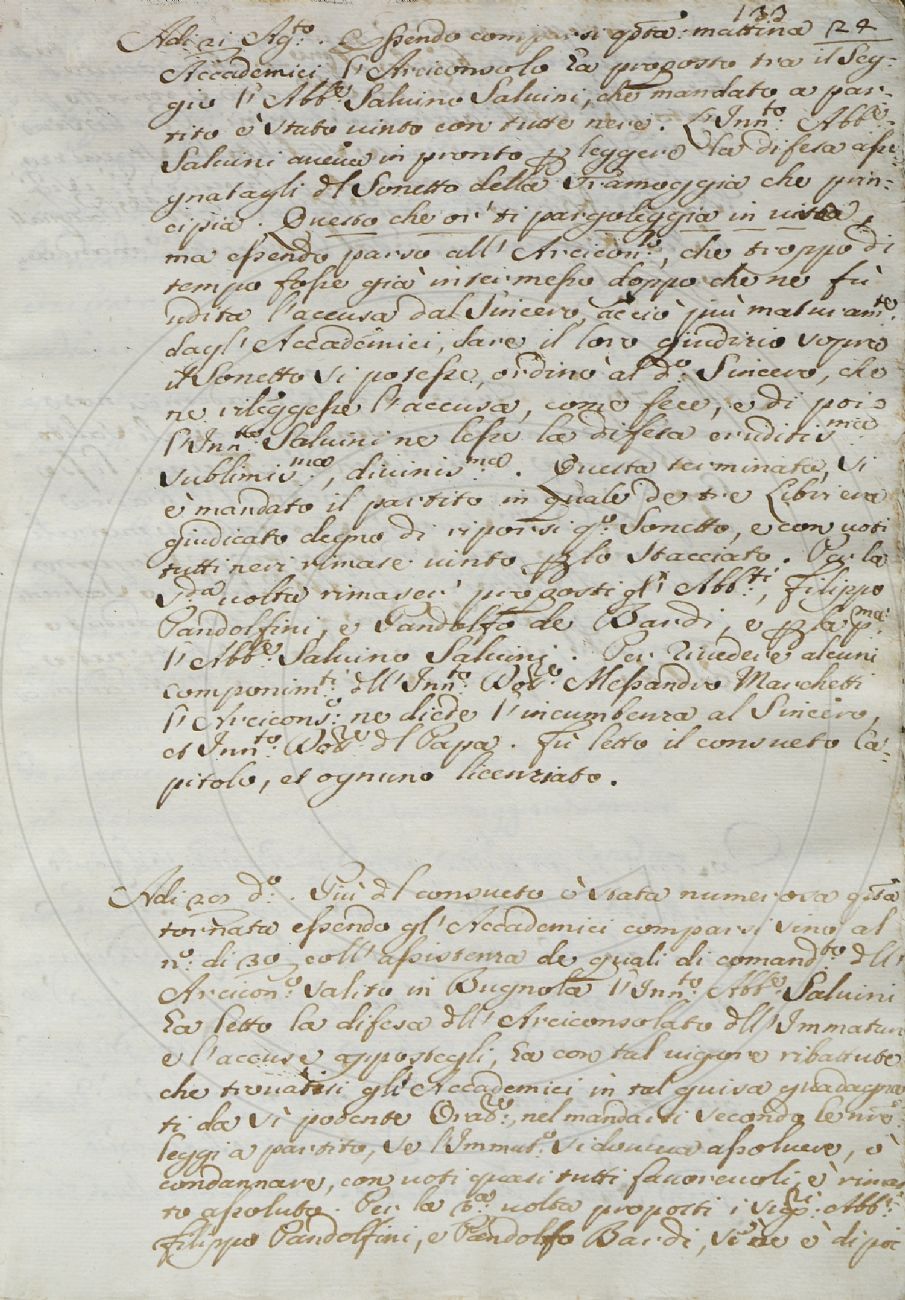 133
Adi 21 Ag.to. Essendo comparsi q.sta mattina 24
Accademici, l'Arciconsolo ha proposto tra il Seg-
gio l'Abb.e Salvino Salvini, che mandato a par-
tito è stato vinto con tutte nere. L'Inn.to Abb.e
Salvini aveva in pronto p leggere la difesa asse-
gnatagli dl Sonetto della Tramoggia che prin-
cipia. Questo che or' ti pargoleggia in vista,
ma essendo parso all'Arcicon.lo, che troppo di
tempo fosse già intermesso doppo che ne fù
udita l'accusa dal Sincero, acciò più maturam.te
dagl'Accademici, dare il loro giudizio sopra
il Sonetto si potesse, ordinò al d.o Sincero, che
ne rileggesse l'accusa, come fece, e di poi
l'Inn.to Salvini ne lesse la difesa eruditis.ma
sublimis.ma, divinis.ma. Questa terminata, si
è mandato il partito in quale de tre Libri era
giudicato degno di riporsi q.o Sonetto, e con voti
tutti neri rimase vinto p lo Stacciato. Per la
S.da volta rimaser' proposti gl'Abb.ti, Filippo
Pandolfini, e Pandolfo de Bardi, e p la p.ma
l'Abb.e Salvino Salvini. Per rivedere alcuni
componim.ti dll'Inn.to Dot.re Alessandro Marchetti
l'Arcicons.o ne diede l'incumbenza al Sincero,
et Inn.to Dot.re dl Papa. Fù letto il consueto Ca-
pitolo, et ognuno licenziato.
Adi 29 d.o. Più dl consueto è stata numerosa q.sta
tornata essendo gl'Accademici comparsi sino al
n.o di 30 coll'assistenza de quali di comand.to dll'
Arcicon.o salito in Bugnola l'Inn.to Abb.e Salvini
ha letto la difesa dll'Arciconsolato dll'Immatur
e l'accuse appostegli, ha con tal vigore ribattute
che trovatisi gl'Accademici in tal guisa guadagna
ti da sì potente Orad.re, nel mandarsi secondo le nre
leggi a partito, se l'Immut.o si doveva assolvere, ò
condannare, con voti quasi tutti favorevoli, è rimas
to assoluto. Per la volta proposti i Sig.ri Abb.i
Filippo Pandolfini, e Pandolfo Bardi, si ne è di poi